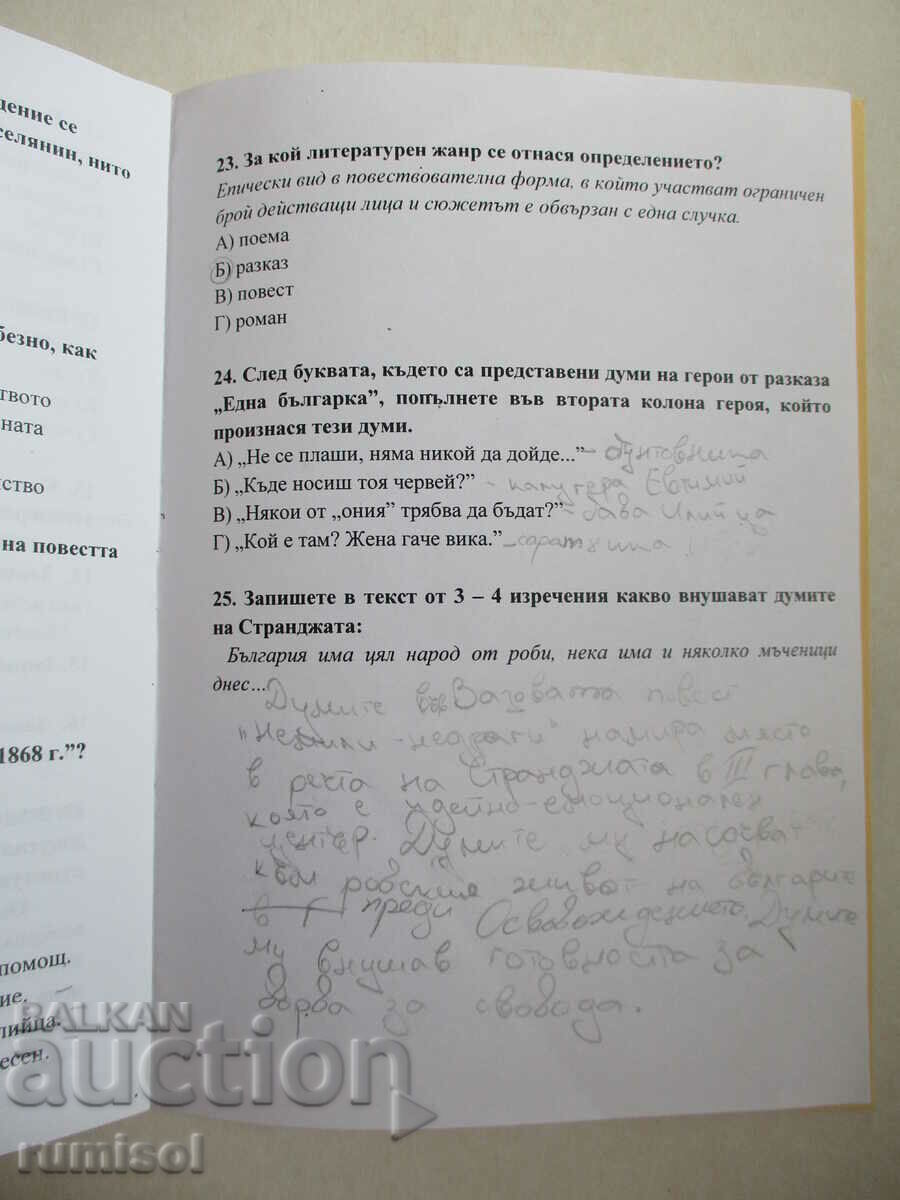 дение се
селянин, нито
безно, как
твото
ната
ство
на повестта
1868 г.”?
помощ.
ние.
лийца.
есен.
23. За кой литературен жанр се отнася определението?
Епически вид в повествователна форма, в който участват ограничен
брой действащи лица и сюжетът е обвързан с една случка.
А) поема
Б) разказ
В) повест
Г) роман
24. След буквата, където са представени думи на герои от разказа
„Една българка”, попълнете във втората колона героя, който
произнася тези думи.
А) „Не се плаши, няма никой да дойде...” – бунтовника
Б) „Къде носиш тоя червей?” – калугера Евтимий
В) „Някои от „ония” трябва да бъдат?” – баба Илийца
Г) „Кой е там? Жена гаче вика.” –
25. Запишете в текст от 3 – 4 изречения какво внушават думите
на Странджата:
България има цял народ от роби, нека има и няколко мъченици
днес... Думите във Вазовата повест
"Немили-недраги" намира място
в речта на Странджата в III глава,
която е идейно-емоционален
център. Думите му насочват
към робския живот на българите
в преди Освобождението. Думите
му внушав готовността за
борба за свобода.
BALKAN
auction
rumisol